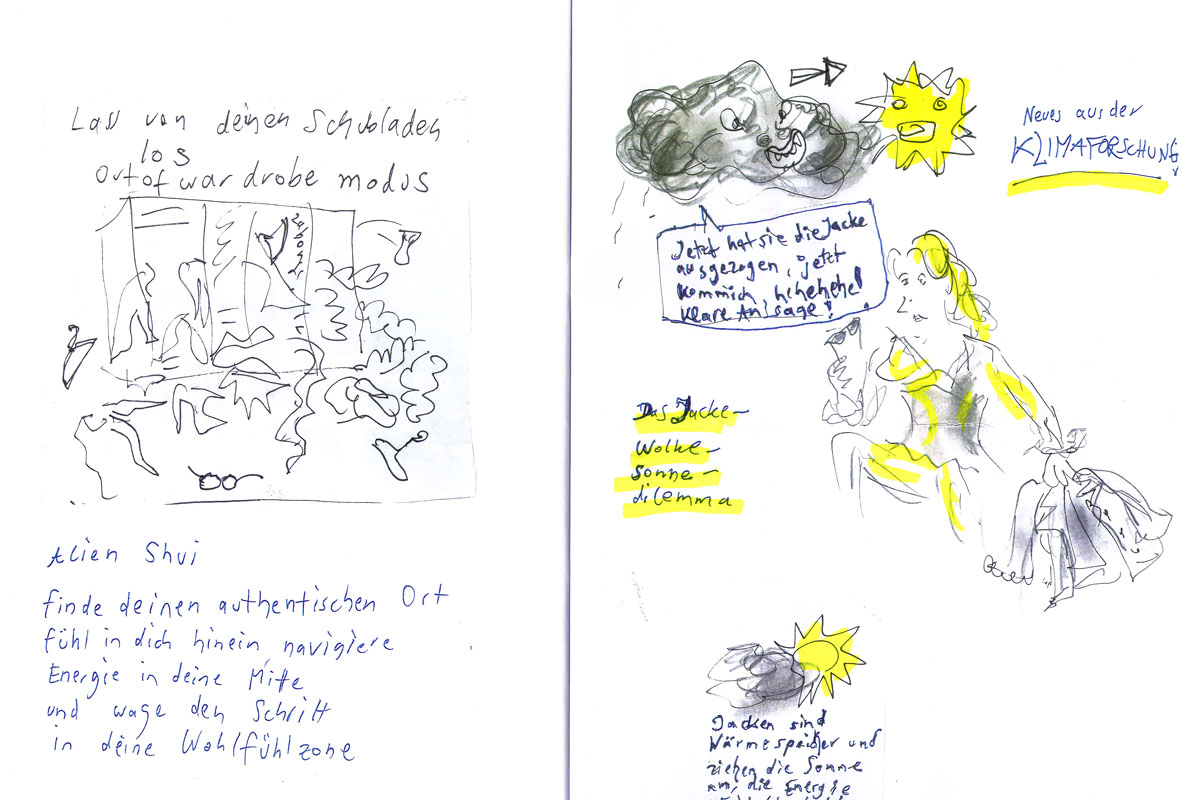 Lass von deinen Schubladen
los
Out of wardrobe modus
Alien Shui
finde deinen authentischen Ort
fühl in dich hinein navigiere
Energie in deine Mitte
und wage den Schritt
in deine Wohlfühlzone
Neues aus der
KLIMAFORSCHUNG
Jetzt hat sie die Jacke
ausgezogen, jetzt
komm ich, hehehehe!
Klare Ansage!
Das Jacke-
Wolke-
Sonne-
dilemma
Jacken sind
Wärmespeicher und
ziehen die Sonne
an, die Energie